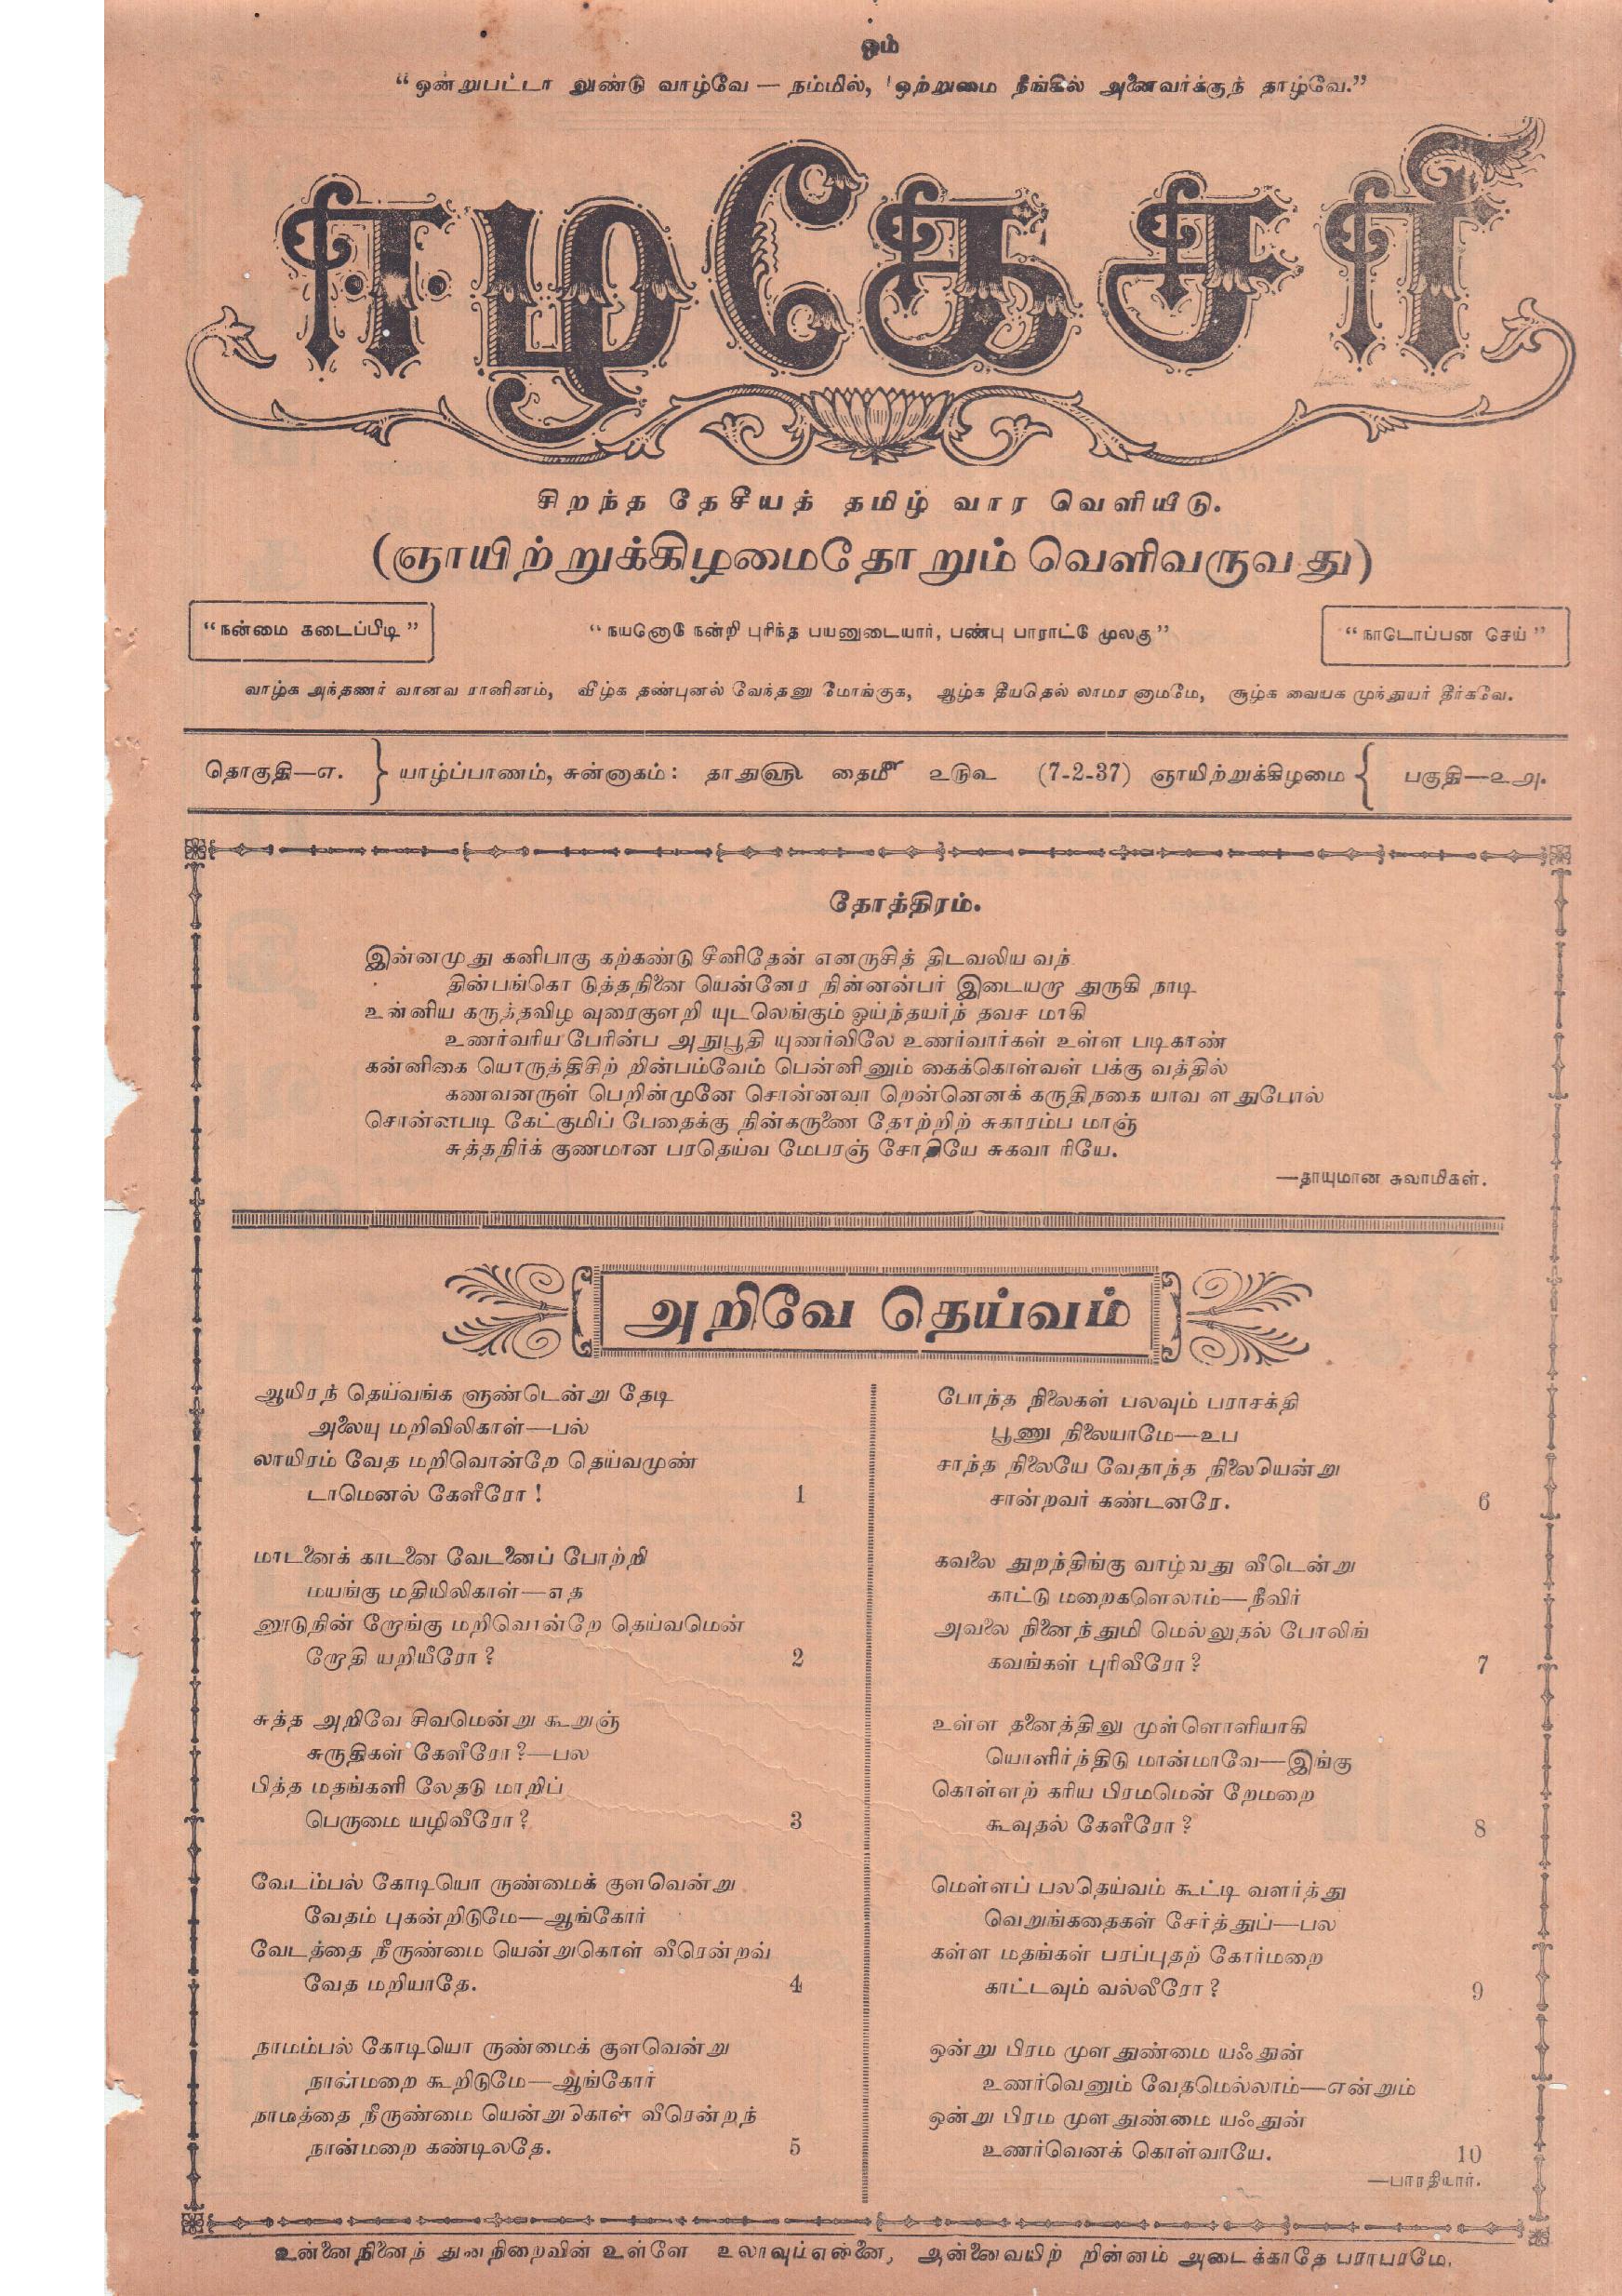 ஓம்
“ஒன்றுபட்டா லுண்டு வாழ்வே — நம்மில், ஒற்றுமை நீங்கில் அனைவர்க்குந் தாழ்வே.”
ஈழகேசரி
சிறந்த தேசீயத் தமிழ் வார வெளியீடு.
(ஞாயிற்றுக்கிழமைதோறும் வெளிவருவது)
“நன்மை கடைப்பிடி”
“நயனொடு நன்றி புரிந்த பயனுடையார், பண்பு பாராட்டு முலகு”
“நாடொப்பன செய்”
வாழ்க அந்தணர் வானவ ரானினம், வீழ்க தண்புனல் வேந்தனு மோங்குக, ஆழ்க தீயதெல் லாமர னாமமே, சூழ்க வையக முந்துயர் தீர்கவே.
தொகுதி—எ.
யாழ்ப்பாணம், சுன்னாகம்: தாது௵ தை௴ ௨௫௨ (7-2-37) ஞாயிற்றுக்கிழமை
பகுதி—உ அ.
தோத்திரம்.
இன்னமுது கனிபாகு கற்கண்டு சீனிதேன் எனருசித் திடவலிய வந்
தின்பங்கொ டுத்தநினை யென்னேர நின்னன்பர் இடையறா துருகி நாடி
உன்னிய கருத்தவிழ வுரைகுளறி யுடலெங்கும் ஓய்ந்தயர்ந் தவச மாகி
உணர்வரிய பேரின்ப அநுபூதி யுணர்விலே உணர்வார்கள் உள்ள படிகாண்
கன்னிகை யொருத்திசிற் றின்பம்வேம் பென்னினும் கைக்கொள்வள் பக்கு வத்தில்
கணவனருள் பெறின்முனே சொன்னவா றென்னெனக் கருதிநகை யாவ ளதுபோல்
சொன்னபடி கேட்குமிப் பேதைக்கு நின்கருணை தோற்றிற் சுகாரம்ப மாஞ்
சுத்தநிர்க் குணமான பரதெய்வ மேபரஞ் சோதியே சுகவா ரியே.
—தாயுமான சுவாமிகள்.
அறிவே தெய்வம்
ஆயிரந் தெய்வங்க ளுண்டென்று தேடி
அலையு மறிவிலிகாள்—பல்
லாயிரம் வேத மறிவொன்றே தெய்வமுண்
டாமெனல் கேளீரோ! 1
மாடனைக் காடனை வேடனைப் போற்றி
மயங்கு மதியிலிகாள்—எத
னூடுநின் றோங்கு மறிவொன்றே தெய்வமென்
றோதி யறியீரோ? 2
சுத்த அறிவே சிவமென்று கூறுஞ்
சுருதிகள் கேளீரோ?—பல
பித்த மதங்களி லேதடு மாறிப்
பெருமை யழிவீரோ? 3
வேடம்பல் கோடியொ ருண்மைக் குளவென்று
வேதம் புகன்றிடுமே—ஆங்கோர்
வேடத்தை நீருண்மை யென்றுகொள் வீரென்றவ்
வேத மறியாதே. 4
நாமம்பல் கோடியொ ருண்மைக் குளவென்று
நான்மறை கூறிடுமே—ஆங்கோர்
நாமத்தை நீருண்மை யென்று கொள் வீரென்றந்
நான்மறை கண்டிலதே. 5
போந்த நிலைகள் பலவும் பராசக்தி
பூணு நிலையாமே—உப
சாந்த நிலையே வேதாந்த நிலையென்று
சான்றவர் கண்டனரே. 6
கவலை துறந்திங்கு வாழ்வது வீடென்று
காட்டு மறைகளெலாம்—நீவிர்
அவலை நினைந்துமி மெல்லுதல் போலிங்
கவங்கள் புரிவீரோ? 7
உள்ள தனைத்திலு முள்ளொளியாகி
யொளிர்ந்திடு மான்மாவே—இங்கு
கொள்ளற் கரிய பிரமமென் றேமறை
கூவுதல் கேளீரோ? 8
மெள்ளப் பலதெய்வம் கூட்டி வளர்த்து
வெறுங்கதைகள் சேர்த்துப்—பல
கள்ள மதங்கள் பரப்புதற் கோர்மறை
காட்டவும் வல்லீரோ? 9
ஒன்று பிரம முளதுண்மை யஃதுன்
உணர்வெனும் வேதமெல்லாம்—என்றும்
ஒன்று பிரம முளதுண்மை யஃதுன்
உணர்வெனக் கொள்வாயே. 10
—பாரதியார்.
உன்னைநினைந் துனநிறைவின் உள்ளே உலாவும்என்னை, அன்னைவயிற் றின்னம் அடைக்காதே பராபரமே.